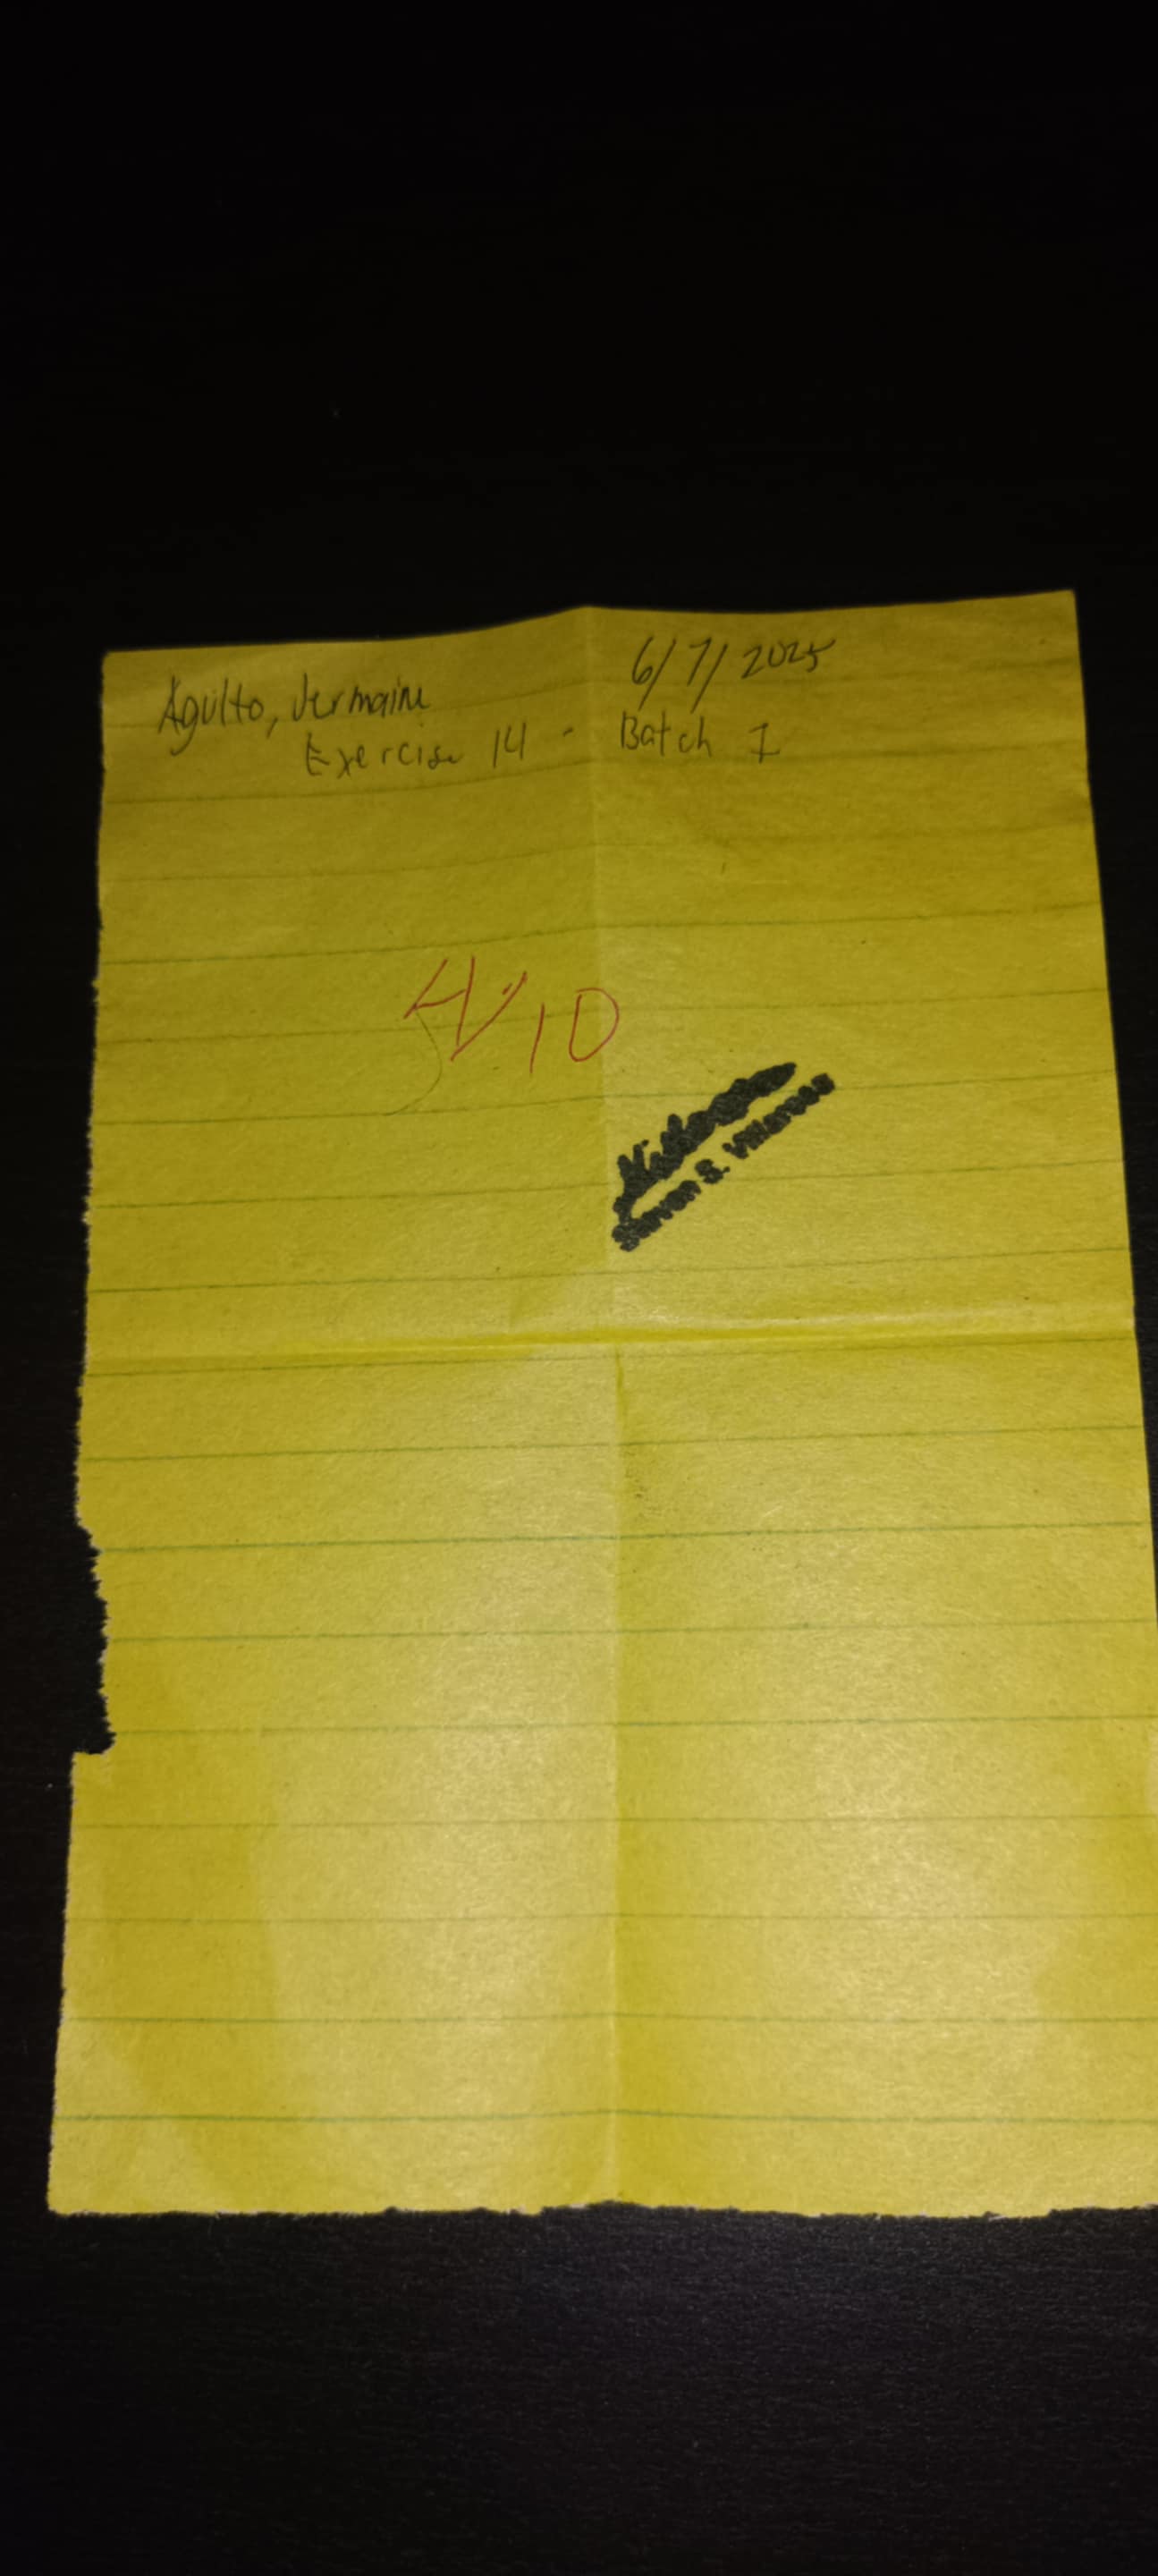 Agulto, Jermaine
6/7/2025
Exercise 14 - Batch 1
4/10
S. Villarosa